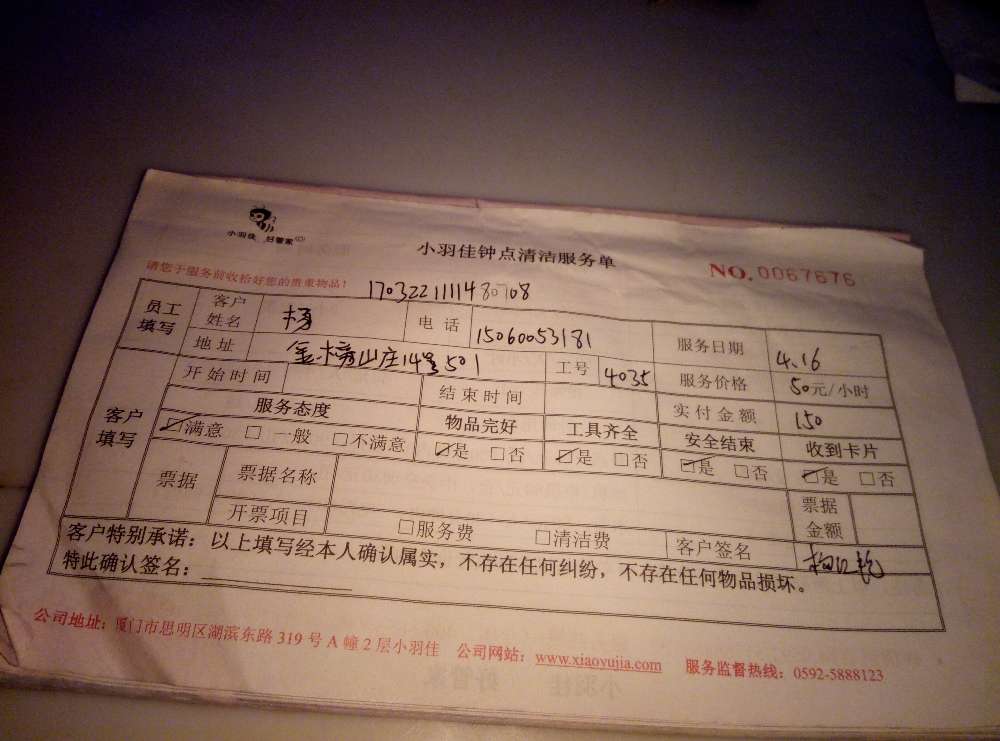 小羽佳 好管家
小羽佳钟点清洁服务单
NO.0067676
请您于服务前收拾好您的贵重物品!
员工填写 客户姓名 杨 电话 15060053181 服务日期 4.16
地址 金榜山庄14号501 工号 4035 服务价格 50元/小时
客户填写 开始时间 结束时间 实付金额 150
服务态度 物品完好 工具齐全 安全结束 收到卡片
☑满意 □一般 □不满意 ☑是 □否 ☑是 □否 ☑是 □否 ☑是 □否
票据 票据名称 票据金额
开票项目 □服务费 □清洁费 客户签名
客户特别承诺:以上填写经本人确认属实,不存在任何纠纷,不存在任何物品损坏。
特此确认签名:
公司地址:厦门市思明区湖滨东路 319 号 A 幢 2 层小羽佳 公司网站:www.xiaoyujia.com 服务监督热线:0592-5888123